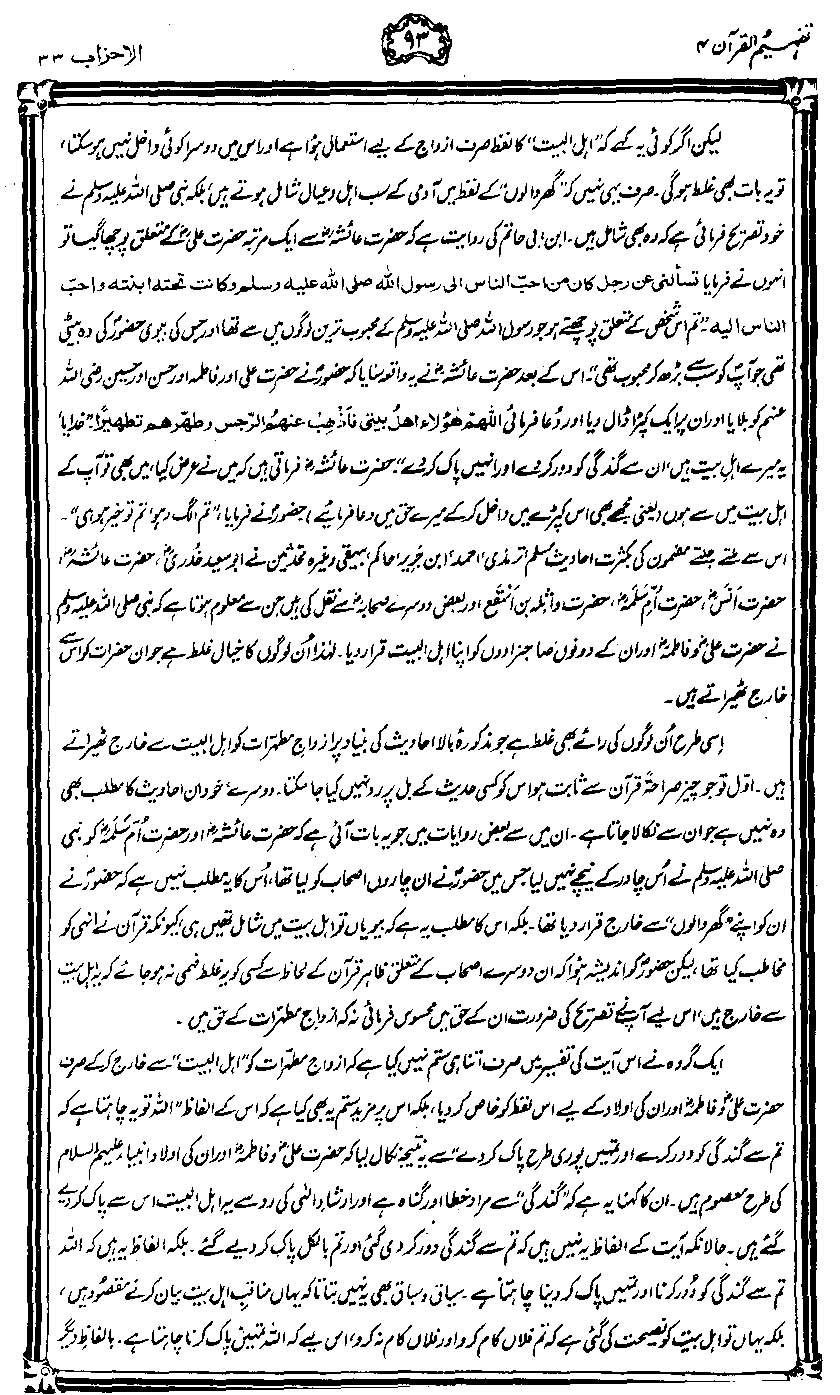 تفہیم القرآن ۴
۹۳
الاحزاب ۳۳
لیکن اگر کوئی یہ کہے کہ ”اہل البیت“ کا لفظ صرف ازواج کے لیے استعمال ہوا ہے اور اس میں دوسرا کوئی داخل نہیں ہو سکتا،
تو یہ بات بھی غلط ہوگی۔ صرف یہی نہیں کہ ”گھر والوں“ کے لفظ میں آدمی کے سب اہل و عیال شامل ہوتے ہیں، بلکہ نبی صلی اللہ علیہ وسلم نے
خود تصریح فرمائی ہے کہ وہ بھی شامل ہیں۔ ابن ابی حاتم کی روایت ہے کہ حضرت عائشہؓ سے ایک مرتبہ حضرت علیؓ کے متعلق پوچھا گیا تو
انہوں نے فرمایا تسألنی عن رجل کان من احبّ الناس الی رسول اللہ صلی اللہ علیہ وسلم وکانت تحتہ ابنتہ واحبّ
الناس الیہ۔ ”تم اس شخص کے متعلق پوچھتے ہو جو رسول اللہ صلی اللہ علیہ وسلم کے محبوب ترین لوگوں میں سے تھا اور جس کی بیوی حضورؐ کی وہ بیٹی
تھی جو آپؐ کو سب سے بڑھ کر محبوب تھی“۔ اس کے بعد حضرت عائشہؓ نے یہ واقعہ سنایا کہ حضورؐ نے حضرت علی اور فاطمہ اور حسن اور حسین رضی اللہ
عنہم کو بلایا اور ان پر ایک کپڑا ڈال دیا اور دُعا فرمائی اللھم ھٰؤلاء اھلُ بیتی فأذھِبْ عنھمُ الرّجس وطھّرھم تطھیراً۔ ”خدایا
یہ میرے اہل بیت ہیں، ان سے گندگی کو دور کر دے اور انہیں پاک کر دے“۔ حضرت عائشہؓ فرماتی ہیں کہ میں نے عرض کیا، میں بھی تو آپ کے
اہل بیت میں سے ہوں (یعنی مجھے بھی اس کپڑے میں داخل کر کے میرے حق میں دعا فرمائیے) حضورؐ نے فرمایا، ”تم الگ رہو، تم تو خیر ہو ہی“۔
اس سے ملتے جلتے مضمون کی بکثرت احادیث مسلم، ترمذی، احمد، ابن جریر، حاکم، بیہقی وغیرہ محدثین نے ابو سعید خُدریؓ، حضرت عائشہؓ،
حضرت انسؓ، حضرت اُمّ سَلَمہؓ، حضرت واثلہ بن اَسْقَع اور بعض دوسرے صحابہؓ سے نقل کی ہیں جن سے معلوم ہوتا ہے کہ نبی صلی اللہ علیہ وسلم
نے حضرت علیؓ و فاطمہؓ اور ان کے دونوں صاحبزادوں کو اپنا اہل البیت قرار دیا۔ لہٰذا اُن لوگوں کا خیال غلط ہے جو ان حضرات کو اس سے
خارج ٹھیراتے ہیں۔
اِسی طرح اُن لوگوں کی رائے بھی غلط ہے جو مذکورۂ بالا احادیث کی بنیاد پر ازواجِ مطہرات کو اہل البیت سے خارج ٹھیراتے
ہیں۔ اوّل تو جو چیز صراحۃً قرآن سے ثابت ہو اس کو کسی حدیث کے بل پر رد نہیں کیا جا سکتا۔ دوسرے، خود ان احادیث کا مطلب بھی
وہ نہیں ہے جو ان سے نکالا جاتا ہے۔ ان میں سے بعض روایات میں جو یہ بات آئی ہے کہ حضرت عائشہؓ اور حضرت اُمّ سَلَمہؓ کو نبی
صلی اللہ علیہ وسلم نے اُس چادر کے نیچے نہیں لیا جس میں حضورؐ نے ان چاروں اصحاب کو لیا تھا، اُس کا یہ مطلب نہیں ہے کہ حضورؐ نے
ان کو اپنے ”گھر والوں“ سے خارج قرار دیا تھا۔ بلکہ اس کا مطلب یہ ہے کہ بیویاں تو اہل بیت میں شامل تھیں ہی، کیونکہ قرآن نے انہی کو
مخاطب کیا تھا، لیکن حضورؐ کو اندیشہ ہوا کہ ان دوسرے اصحاب کے متعلق ظاہر قرآن کے لحاظ سے کسی کو یہ غلط فہمی نہ ہو جائے کہ یہ اہل بیت
سے خارج ہیں، اس لیے آپؐ نے تصریح کی ضرورت ان کے حق میں محسوس فرمائی نہ کہ ازواج مطہرات کے حق میں۔
ایک گروہ نے اس آیت کی تفسیر میں صرف اتنا ہی ستم نہیں کیا ہے کہ ازواج مطہرات کو ”اہل البیت“ سے خارج کر کے صرف
حضرت علیؓ و فاطمہؓ اور ان کی اولاد کے لیے اس لفظ کو خاص کر دیا، بلکہ اس پر مزید ستم یہ بھی کیا ہے کہ اس کے الفاظ ”اللہ تو یہ چاہتا ہے کہ
تم سے گندگی کو دور کرے اور تمہیں پوری طرح پاک کر دے“ سے یہ نتیجہ نکال لیا کہ حضرت علیؓ و فاطمہؓ اور ان کی اولاد انبیاء علیہم السلام
کی طرح معصوم ہیں۔ ان کا کہنا یہ ہے کہ ”گندگی“ سے مراد خطا اور گناہ ہے اور ارشادِ الٰہی کی رو سے یہ اہل البیت اس سے پاک کر دیے
گئے ہیں۔ حالانکہ آیت کے الفاظ یہ نہیں ہیں کہ تم سے گندگی دور کر دی گئی اور تم بالکل پاک کر دیے گئے۔ بلکہ الفاظ یہ ہیں کہ اللہ
تم سے گندگی کو دُور کرنا اور تمہیں پاک کر دینا چاہتا ہے۔ سیاق و سباق بھی یہ نہیں بتاتا کہ یہاں مناقبِ اہل بیت بیان کرنے مقصود ہیں،
بلکہ یہاں تو اہل بیت کو نصیحت کی گئی ہے کہ تم فلاں کام کرو اور فلاں کام نہ کرو، اس لیے کہ اللہ تمہیں پاک کرنا چاہتا ہے۔ بالفاظِ دیگر